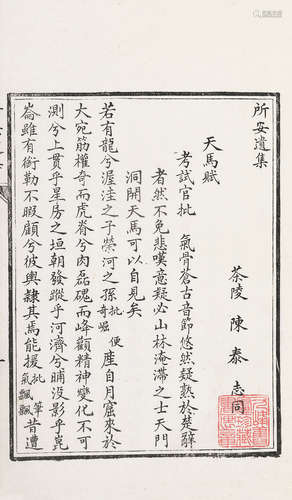 所安遺集
茶陵 陳泰 志同
天馬賦
考試官批 氣骨蒼古音節悠然疑熟於楚辭
者然不免悲嘆意疑必山林淹滯之士天門
洞開天馬可以自見矣
若有龍兮渥洼之子榮河之孫批奇崛便産自月窟來於
大宛筋權奇而虎脊兮肉磊磈而峰顴精神變化不可
測兮上貫乎星房之垣朝發蹤乎河濟兮晡没影乎崑
崙雖有銜勒不暇顧兮彼輿隸其焉能援批筆氣飄飄昔遭